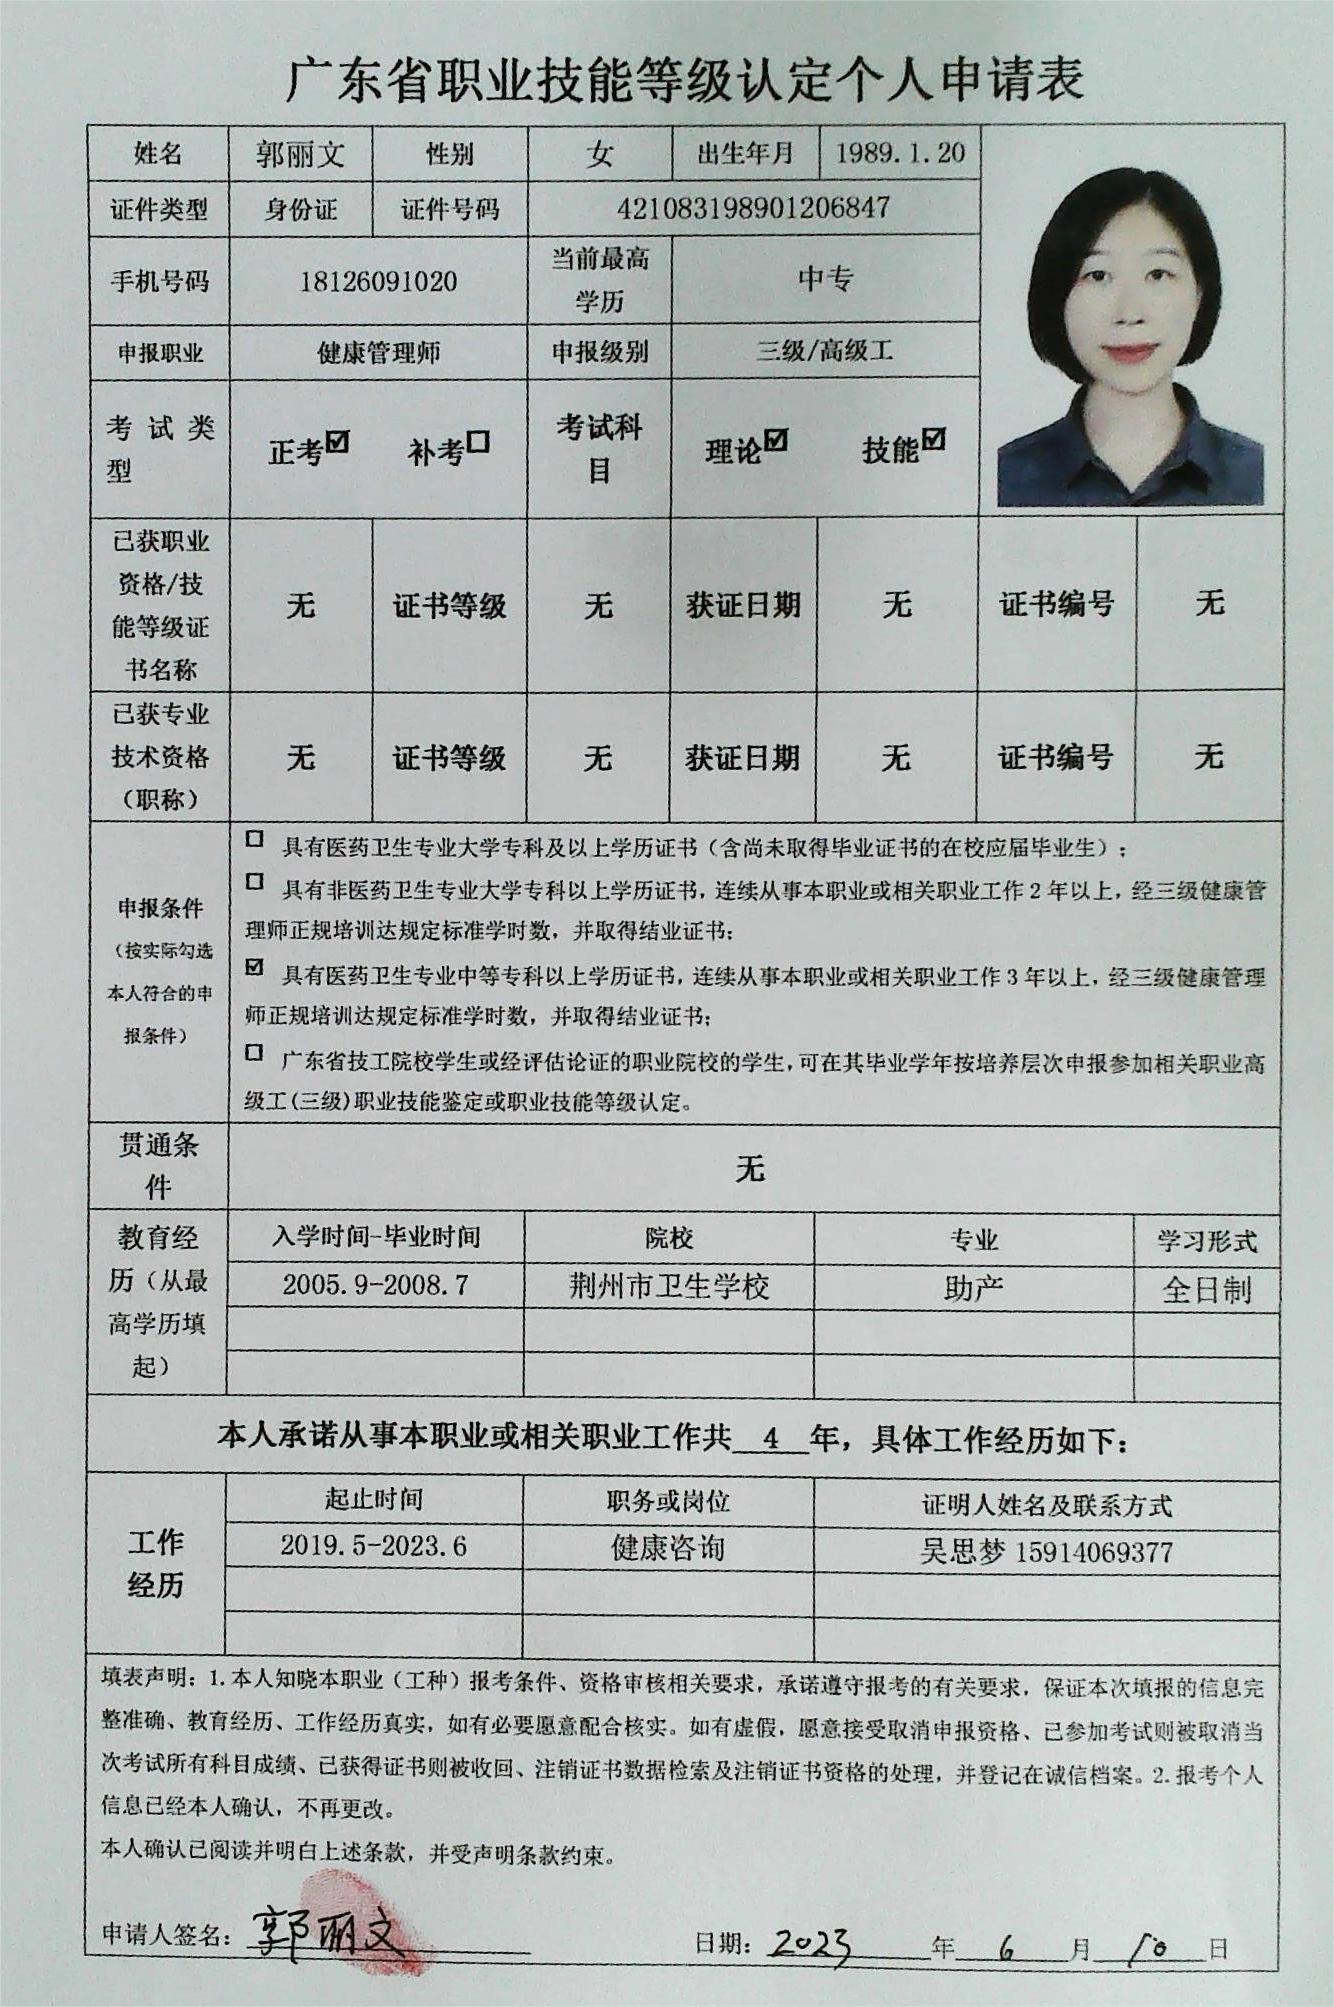 广东省职业技能等级认定个人申请表
姓名 郭丽文 性别 女 出生年月 1989.1.20
证件类型 身份证 证件号码 421083198901206847
手机号码 18126091020 当前最高
学历 中专
申报职业 健康管理师 申报级别 三级/高级工
考试类
型 正考☑ 补考☐ 考试科
目 理论☑ 技能☑
已获职业
资格/技
能等级证
书名称 无 证书等级 无 获证日期 无 证书编号 无
已获专业
技术资格
（职称） 无 证书等级 无 获证日期 无 证书编号 无
申报条件
（按实际勾选
本人符合的申
报条件）
☐ 具有医药卫生专业大学专科及以上学历证书（含尚未取得毕业证书的在校应届毕业生）；
☐ 具有非医药卫生专业大学专科以上学历证书，连续从事本职业或相关职业工作2年以上，经三级健康管
理师正规培训达规定标准学时数，并取得结业证书；
☑ 具有医药卫生专业中等专科以上学历证书，连续从事本职业或相关职业工作3年以上，经三级健康管理
师正规培训达规定标准学时数，并取得结业证书；
☐ 广东省技工院校学生或经评估论证的职业院校的学生，可在其毕业学年按培养层次申报参加相关职业高
级工(三级)职业技能鉴定或职业技能等级认定。
贯通条
件 无
教育经
历（从最
高学历填
起）
入学时间-毕业时间 院校 专业 学习形式
2005.9-2008.7 荆州市卫生学校 助产 全日制
本人承诺从事本职业或相关职业工作共 4 年，具体工作经历如下：
工作
经历
起止时间 职务或岗位 证明人姓名及联系方式
2019.5-2023.6 健康咨询 吴思梦 15914069377
填表声明：1.本人知晓本职业（工种）报考条件、资格审核相关要求，承诺遵守报考的有关要求，保证本次填报的信息完
整准确、教育经历、工作经历真实，如有必要愿意配合核实。如有虚假，愿意接受取消申报资格、已参加考试则被取消当
次考试所有科目成绩、已获得证书则被收回、注销证书数据检索及注销证书资格的处理，并登记在诚信档案。2.报考个人
信息已经本人确认，不再更改。
本人确认已阅读并明白上述条款，并受声明条款约束。
申请人签名：郭丽文 日期：2023 年 6 月 10 日